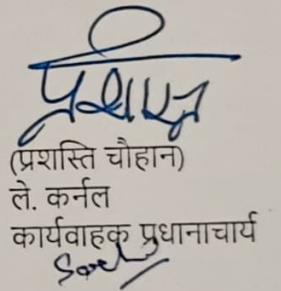 प्रशस्ति
(प्रशस्ति चौहान)
ले. कर्नल
कार्यवाहक प्रधानाचार्य